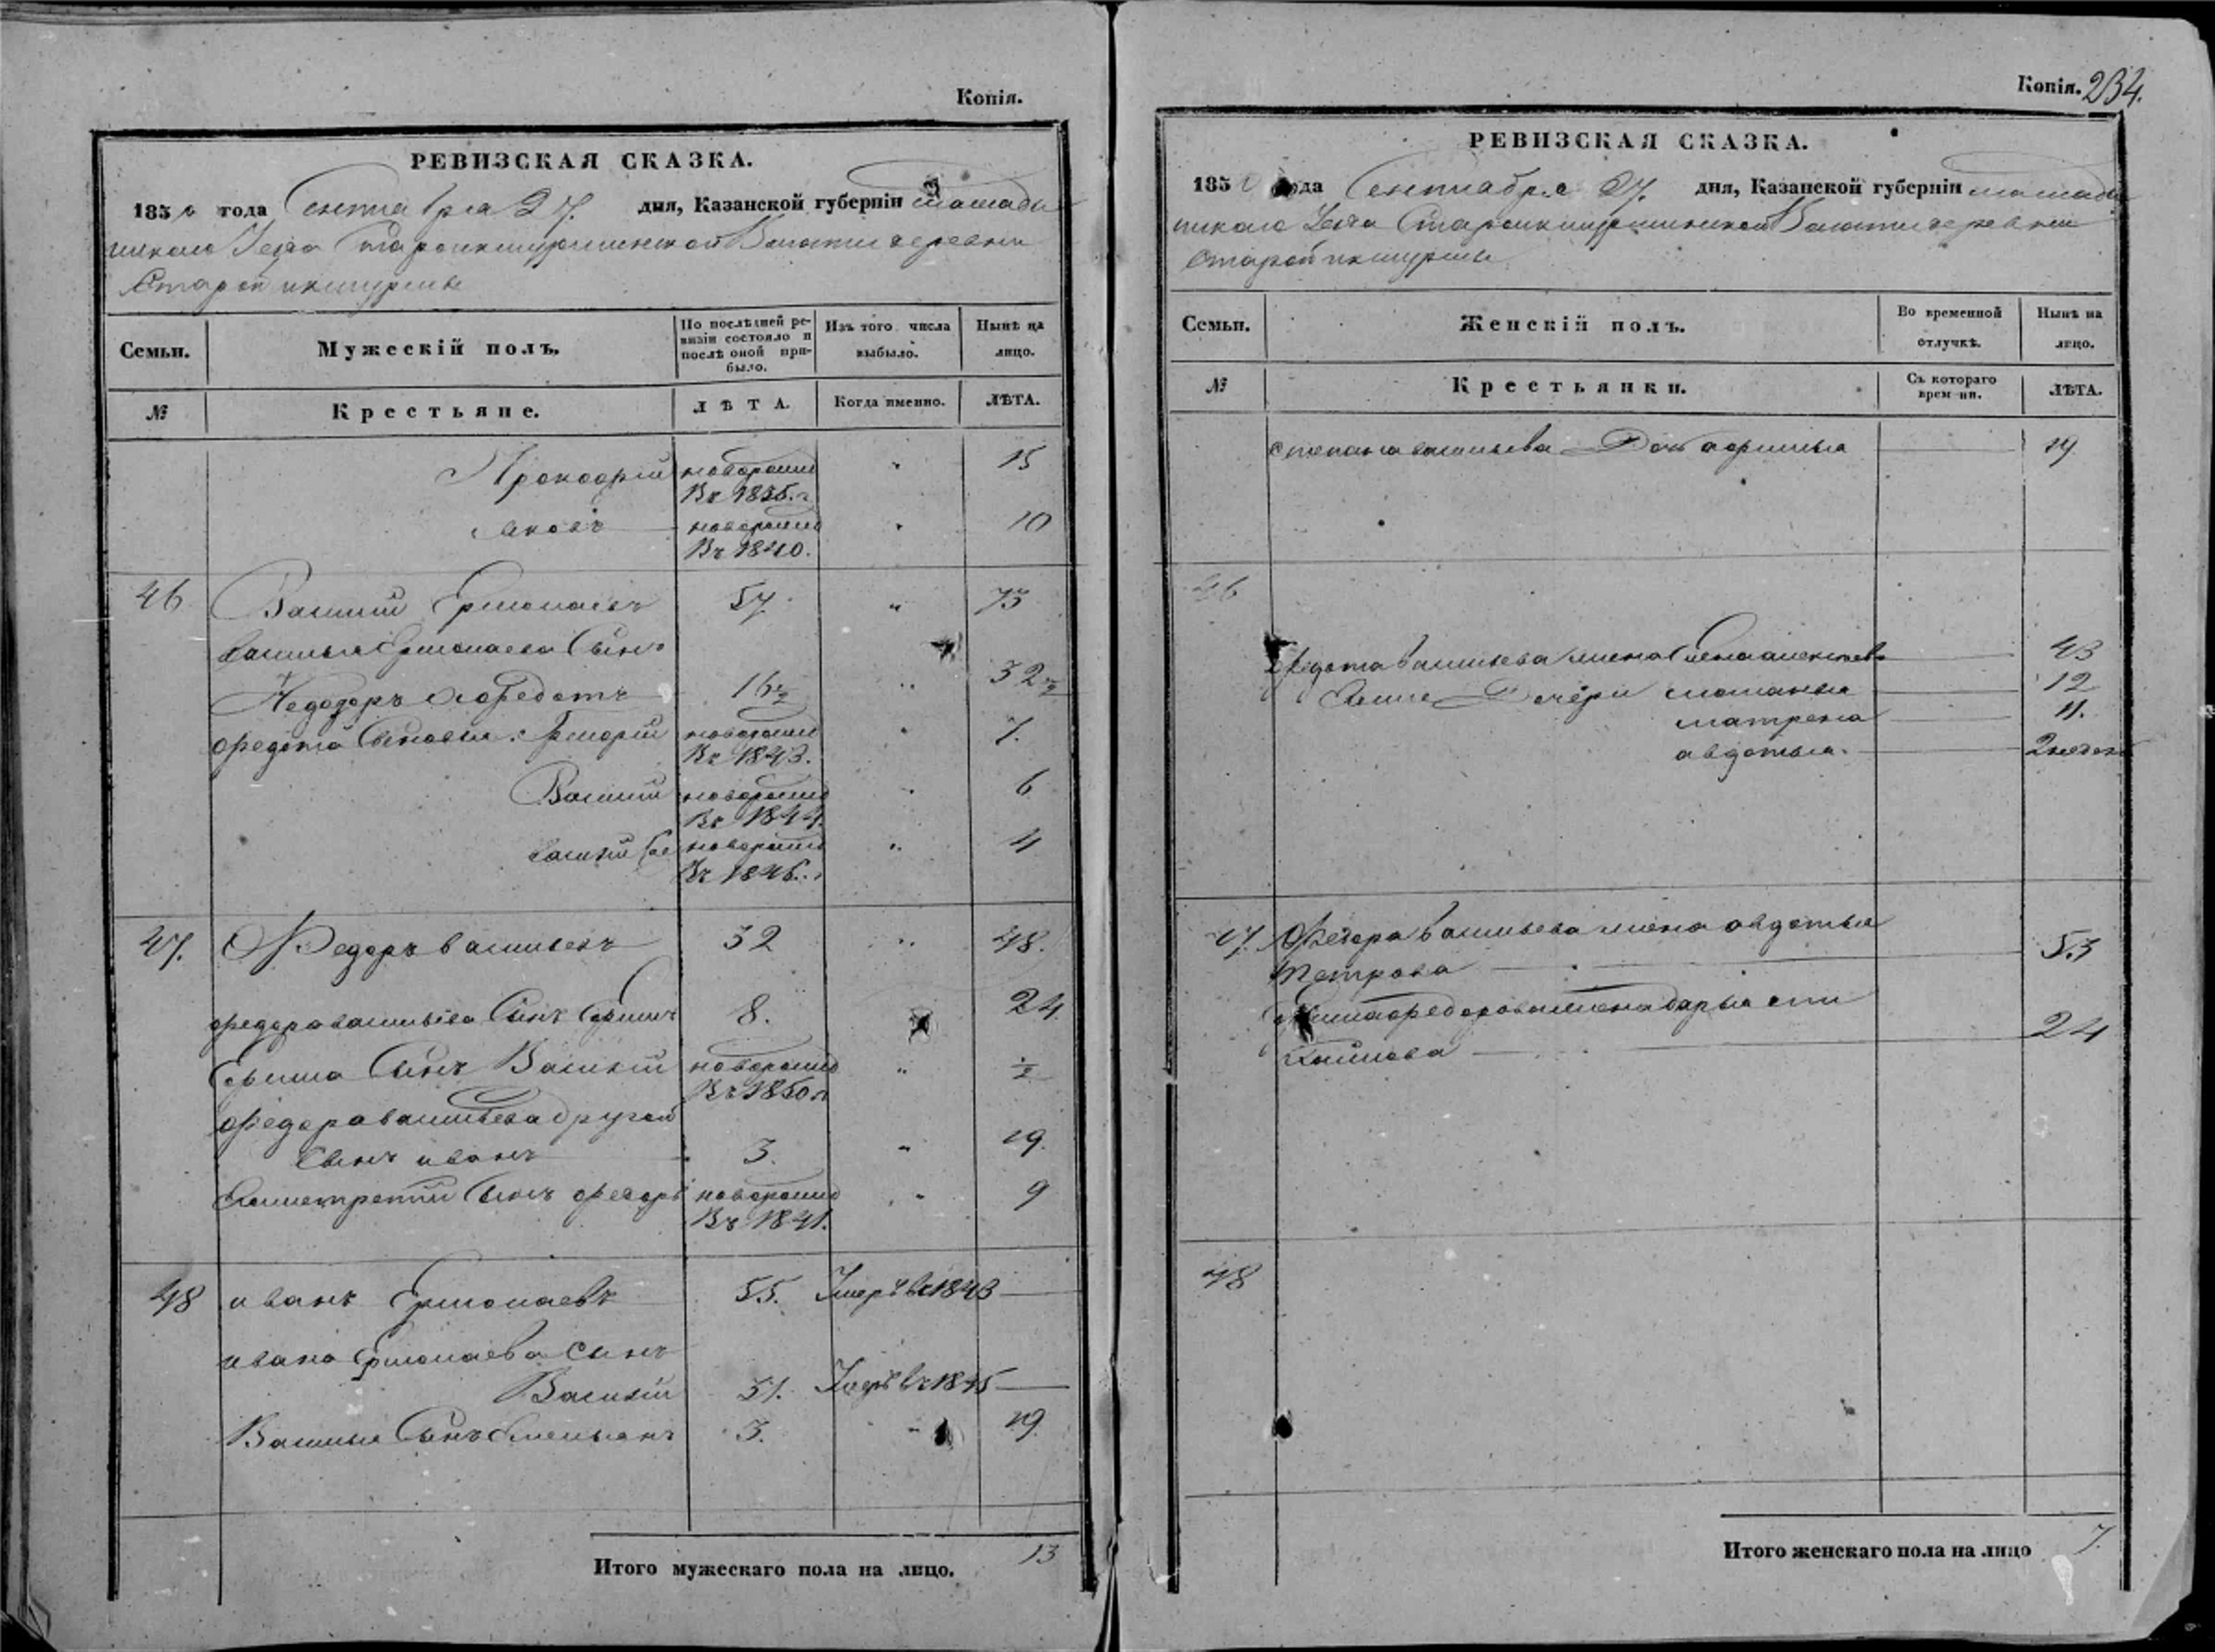 Копія.
РЕВИЗСКАЯ СКАЗКА.
1850 года Сентября 27. дня, Казанской губерніи мамады
шскаго Уезда Староикшурминской Волости деревни
Старой икшурмы
Семьи. Мужескій полъ. По послѣдней ревизіи состояло и послѣ оной прибыло. Изъ того числа выбыло. Нынѣ на лицо.
№ Крестьяне. ЛѢТА. Когда именно. ЛѢТА.
Прокофий новорожд 15
Въ 1835. г
яковъ новорожд 10
Въ 1840.
46 Василий Ермолаевъ 57. " 73
василья Ермолаева Сынъ
Федоръ 16 1/2 " 32 1/2
федота Сыновья: Григорий новорожд " 7.
Въ 1843.
Василий новорожд " 6
Въ 1844.
василий новорожд " 4
Въ 1846.
47. Федоръ васильевъ 32 " 48.
федора васильева Сынъ Ефимъ 8. 24.
Ефима Сынъ Василий новорожд " 1/2
Въ 1850 г
федора васильева другой
Сынъ иванъ 3. " 19.
Ево же третий Сынъ федоръ новорожд " 9
Въ 1841.
48 иванъ Ермолаевъ 55. Умеръ въ 1843 —
ивана Ермолаева сынъ
Василий 31. Умеръ въ 1845 —
Василья Сынъ Емельянъ 3. " 19.
Итого мужескаго пола на лицо. 13
Копія. 234.
РЕВИЗСКАЯ СКАЗКА.
1850 года Сентября 27. дня, Казанской губерніи мамады
шскаго Уезда Староикшурминской Волости деревни
Старой икшурмы
Семьи. Женскій полъ. Во временной отлучкѣ. Нынѣ на лицо.
№ Крестьянки. Съ котораго времени. ЛѢТА.
степана васильева Дочь афимья 14
46
федота васильева жена 43
Ево же Дочери 12
матрена 11.
авдотья. 2 недели
47. Федора васильева жена авдотья
Петрова 53
Ефима федорова жена дарья сти
24
48
Итого женскаго пола на лицо 7.